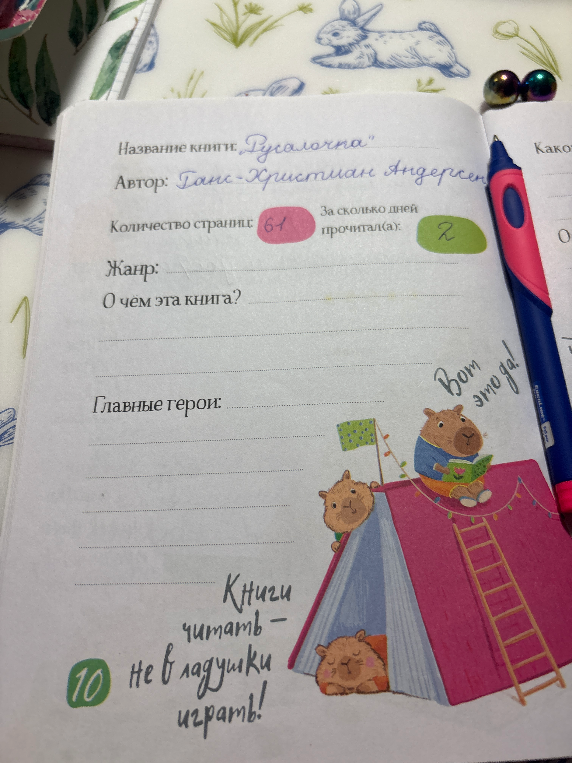 Название книги: „Русалочка"
Автор: Ганс-Христиан Андерсен
Количество страниц: 61
За сколько дней
прочитал(а): 2
Жанр:
О чём эта книга?
Главные герои:
Вот
это да!
Книги
читать –
не в ладушки
играть!
10
Како
О